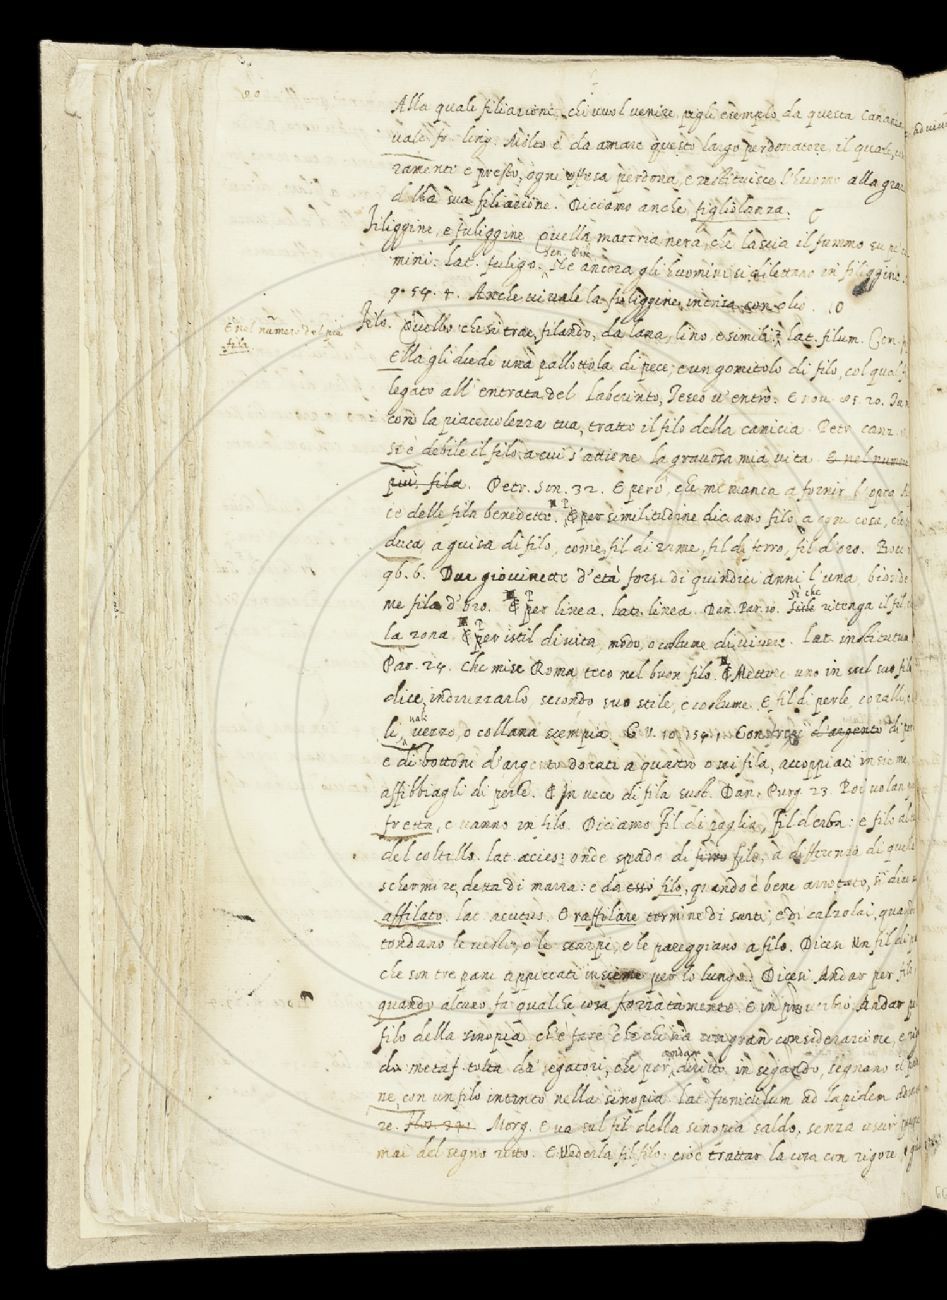 Alla quale filiazione, chi vuol venire, pigli esempio da questa Canane
vale fr. lino. Molto è da amare questo largo perdonatore, il quale,
ramente e presto, ogni offesa perdona, e restituisce l'huomo alla gra
della sua filiazione. Diciamo anche figliolanza.
Filiggine, e fuliggine. Quella materia nera, che lascia il fummo su ne
mini: lat. fuligo. Sen. Che ancora gli huomini si dilettano in filiggine.
g. 59. 4. Anche vi vale la fuliggine, con olio.
E nel numero del più
fila
Filo. Quello che si trae, filando, da lana, lino, e simili. lat. filum.
Ella gli diede una pallottola di pece, e un gomitolo di filo, col qual
legato all' entrata del Laberinto, Teseo v' entrò. E nov. 85. 20.
con la piacevolezza tua, tratto il filo della camicia. Petr. canz.
Si è debile il filo, a cui s'attiene la gravosa mia vita. E nel numero
più. fila. Petr. Son. 32. E però, che mi manca a fornir l'opra
ce delle fila benedette. E per similitudine diciamo filo, a ogni cosa, che
duca a guisa di filo, come, fil di rame, fil di ferro, fil d'oro. Bocc
96. 6. Due giovinette d'età forse di quindici anni l'una, bionde
me fila d'oro. E per linea. lat. linea. Dan. Par. 10. Si che ritenga il fil
la zona. E per istil di vita, modo, o costume di vivere. lat. institutum
Par. 24. Che mise Roma teco nel buon filo. E Mettere uno in sul suo filo
dice, indirizzarlo, secondo suo stile, e costume. E fil di perle, coralli,
li, vezzo, o collana scempia. G. V. 10. 154. 1. Con fregi d'argento di per
e di bottoni d'argento dorati a quattro o sei fila, accoppiati insieme,
affibbiagli di perle. E in vece di fila sust. Dan. Purg. 23. Poi volan
fretta, e vanno in filo. Diciamo fil di paglia, fil d'erba: e filo
del coltello. lat. acies; onde spada di filo, a differenza di quell
schermire, detta di marra: e da esso filo, quando è bene arrotato, si dice
affilato. lat. acutus. E raffilare termine di sarti, e di calzolai, quand
tondano le vesti, o le scarpe, e le pareggiano a filo. Dicesi Un fil di pa
che son tre pani appiccati insieme per lo lungo. Dicesi Andar per filo
quando alcuno fa qualche cosa forzatamente. E in proverbio, Andar pe
filo della sinopia ch'è fare ciò che si ha con gran considerazione, e
do metaf. tolta da' segatori, che per andare diritto in segando, segnano il
ne, con un filo intinto nella sinopia lat. funiculum ad lapidem
re. Morg. E va sul fil della sinopia saldo, senza uscir
mai del segno ritto. E Vederla fil filo: cioè trattar la cosa con rigore,